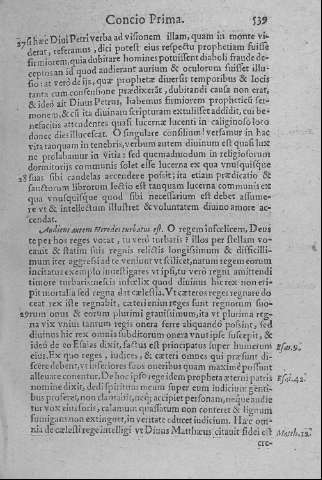 Concio Prima. 539
27 si hæc Diui Petri verba ad visionem illam, quam in monte vi-
derat, referamus, dici potest eius respectu prophetiam fuisse
firmiorem, quia dubitare homines potuissent diaboli fraude de-
ceptos an id quod audierant aurium & oculorum fuisset illu-
sio: at verò de ijs, quæ prophetæ diuersis temporibus & locis
tanta cum consensione prædixerāt, dubitandi causa non erat,
& ideò ait Diuus Petrus, habemus firmiorem propheticū ser-
monem, & cū ita diuinam scripturam extulisset addidit, cui be-
nefacitis attendentes quasi lucernæ lucenti in caliginoso loco
donec dies illucescat. O singulare consilium! versamur in hac
vita tanquam in tenebris, verbum autem diuinum est quasi lux
ne prolabamur in vitia: sed quemadmodum in religiosorum
dormitorijs communis solet esse lucerna ex qua vnusquisque
28 suas sibi candelas accendere possit; ita etiam prædicatio &
sanctorum librorum lectio est tanquam lucerna communis ex
qua vnusquisque quod sibi necessarium est debet assume-
re vt & intellectum illustret & voluntatem diuino amore ac-
cendat.
Audiens autem Herodes turbatus est. O regem infœlicem, Deus
te per hos reges vocat, tu verò turbaris? illos per stellam vo-
cauit & statim suis regnis relictis longissimum & difficilli-
mum iter aggressi ad te veniunt vt scilicet, natum regem eorum
incitatus exemplo inuestigares vt ipsi, tu verò regni amittendi
timore turbaris: nescis infœlix quod diuinus hic rex non eri-
pit mortalia sed regna dat cælestia. Vt cæteros reges regnare do-
ceat rex iste regnabit, cæteri enim reges sunt regnorum suo-
29 rum onus & eorum plurimi grauissimum, ita vt plurima reg-
na vix vnius tantum regis onera ferre aliquando possint, sed
diuinus hic rex omnia subditorum onera vnus ipse suscepit, &
ideò de eo Esaias dixit, factus est principatus super humerum Esai. 9.
eius. Ex quo reges, iudices, & cæteri omnes qui præsunt di-
scere debent, vt inferiores suos oneribus quam maximè possunt
alleuare conentur. De hoc ipso rege idem propheta æterni patris
nomine dixit, dedi spiritum meum super eum iudicium genti- Esai. 42.
bus proferet, non clamabit, neq; accipiet personam, neque audie
tur vox eius foris, calamum quassatum non conteret & lignum
fumigans non extinguet, in veritate educet iudicium. Hæc om-
nia de cælesti rege intelligi vt Diuus Matthæus citauit fides est Matth. 12.
cre-